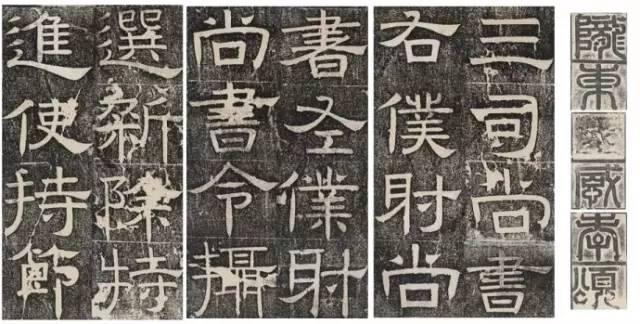 隴東感孝頌
三司尚書
右僕射尚
書左僕射
尚書令攝
選新除特
進使持節